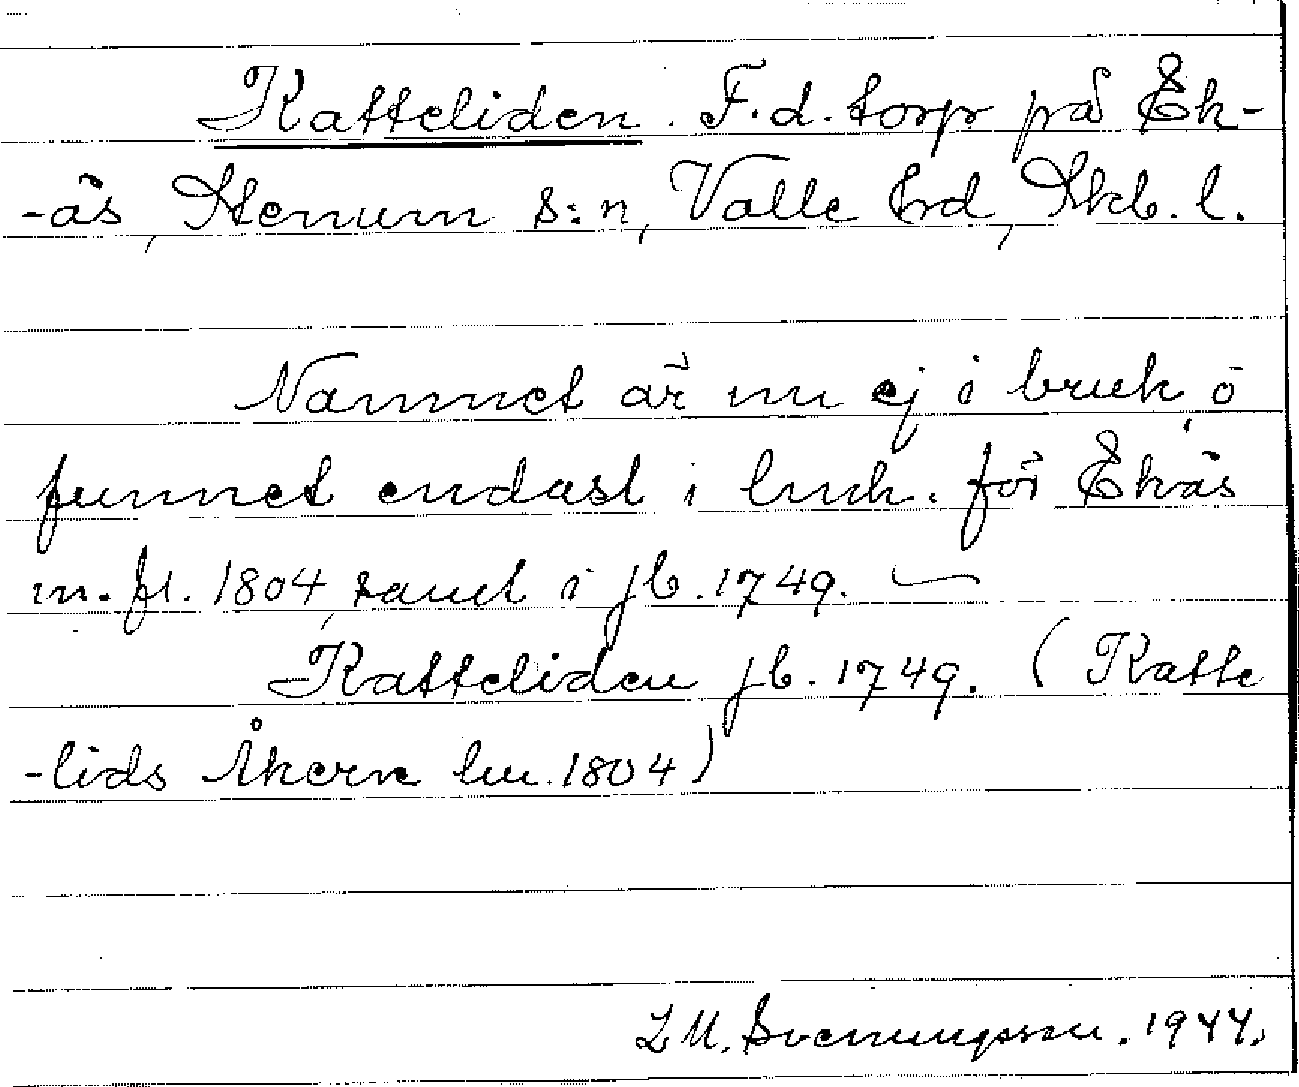 Katteliden. F.d. torp på Ek-
-ås, Stenum s:n, Valle hrd, Skb. l.
Namnet är nu ej i bruk, o
funnet endast i lmk. för Ekås
m. fl. 1804, samt i jb. 1749. —
Katteliden jb. 1749. (Katte
-lids Åkern lm. 1804)
L M. Svenungsson. 1944.